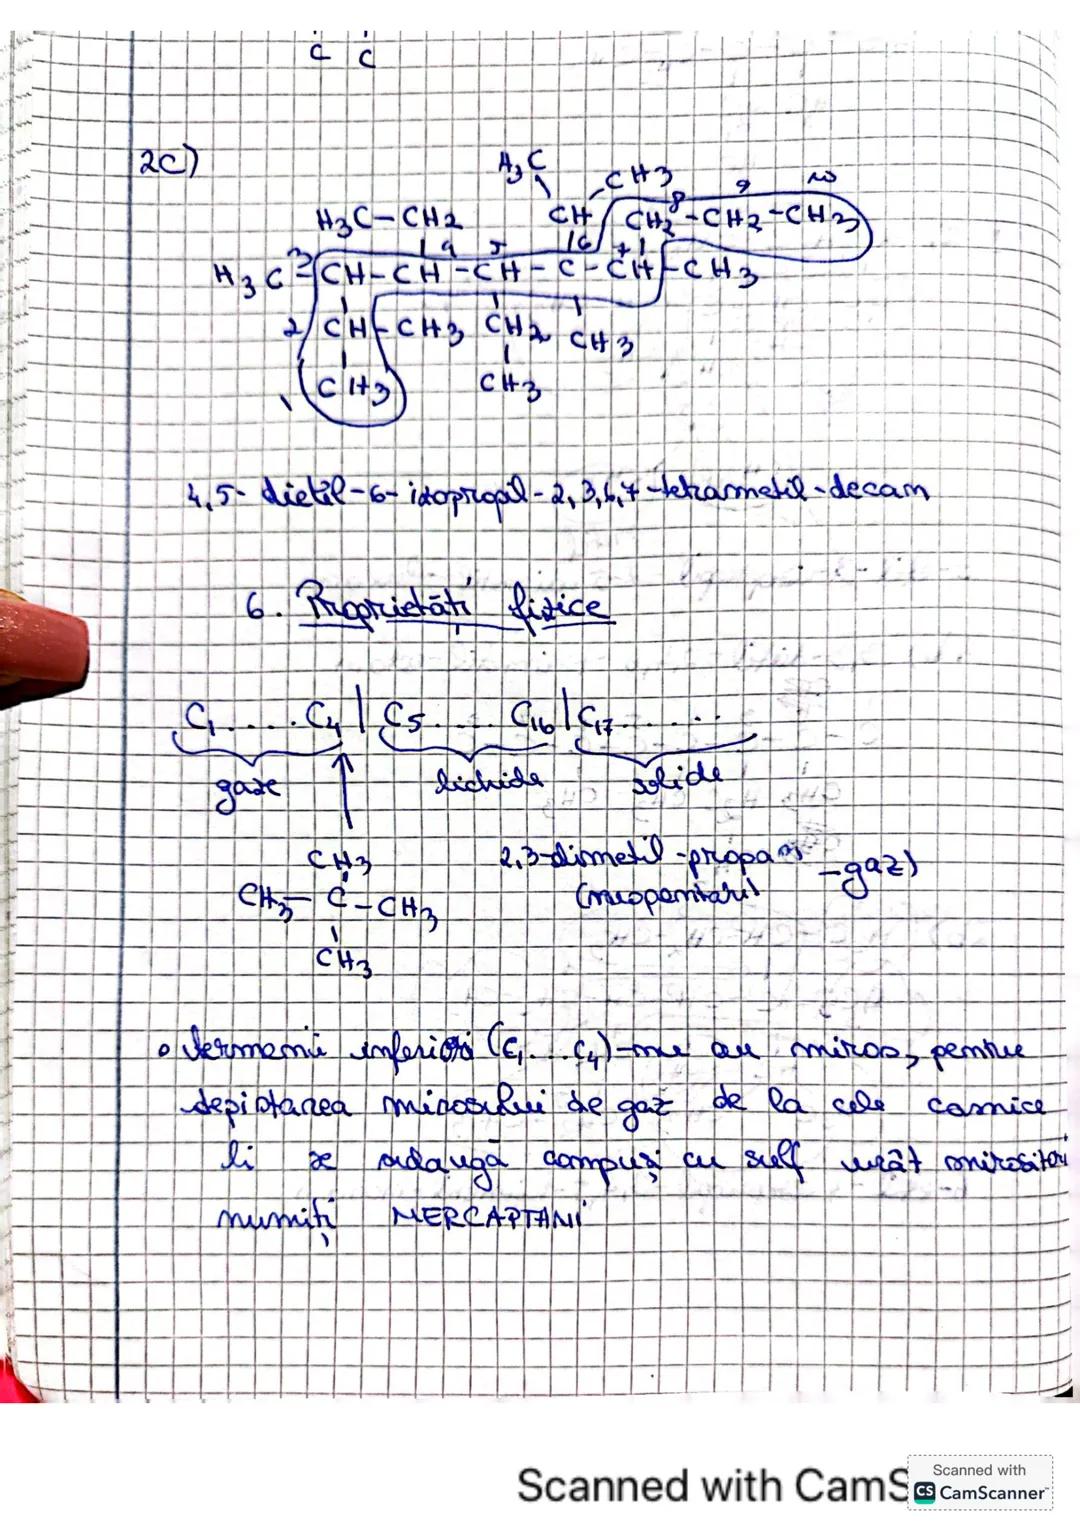 C C
2C)
H3C CH3 8 9 10
H3C-CH2 CH CH2-CH2-CH3
3 4 5 6 7
H3C-CH-CH-CH-C-CH-CH3
2 CH-CH3 CH2 CH3
1 CH3 CH3
4,5-dietil-6-izopropil-2,3,6,7-tetrametil-decan
6. Proprietăți fizice
C1.....C4 | C5.....C16 | C17.......
gaze lichide solide
CH3 2,3-dimetil-propan -gaz)
CH3-C-CH3
CH3
• termenii inferiori (C1...C4)-nu au miros, pentru
depistarea mirosului de gaz de la cele casnice
li se adaugă compuși cu sulf urât mirositori
numiți MERCAPTANI
Scanned with CamS
Scanned with
CS CamScanner